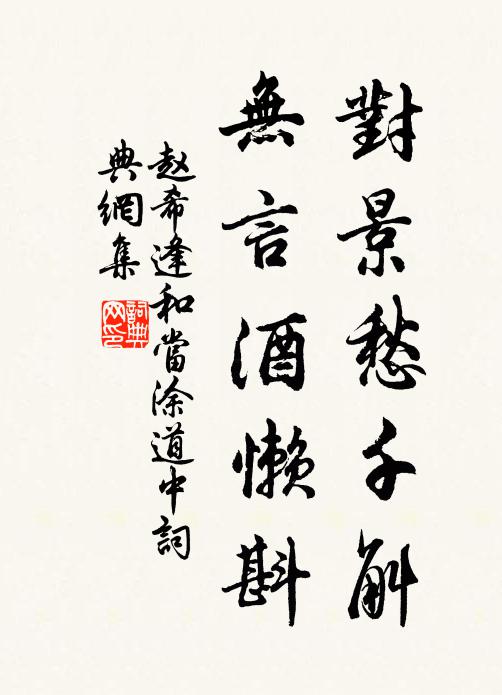 對景愁千斛
無言酒懒斟
赵希逢和當涂道中詞
典網集
詞典
网印